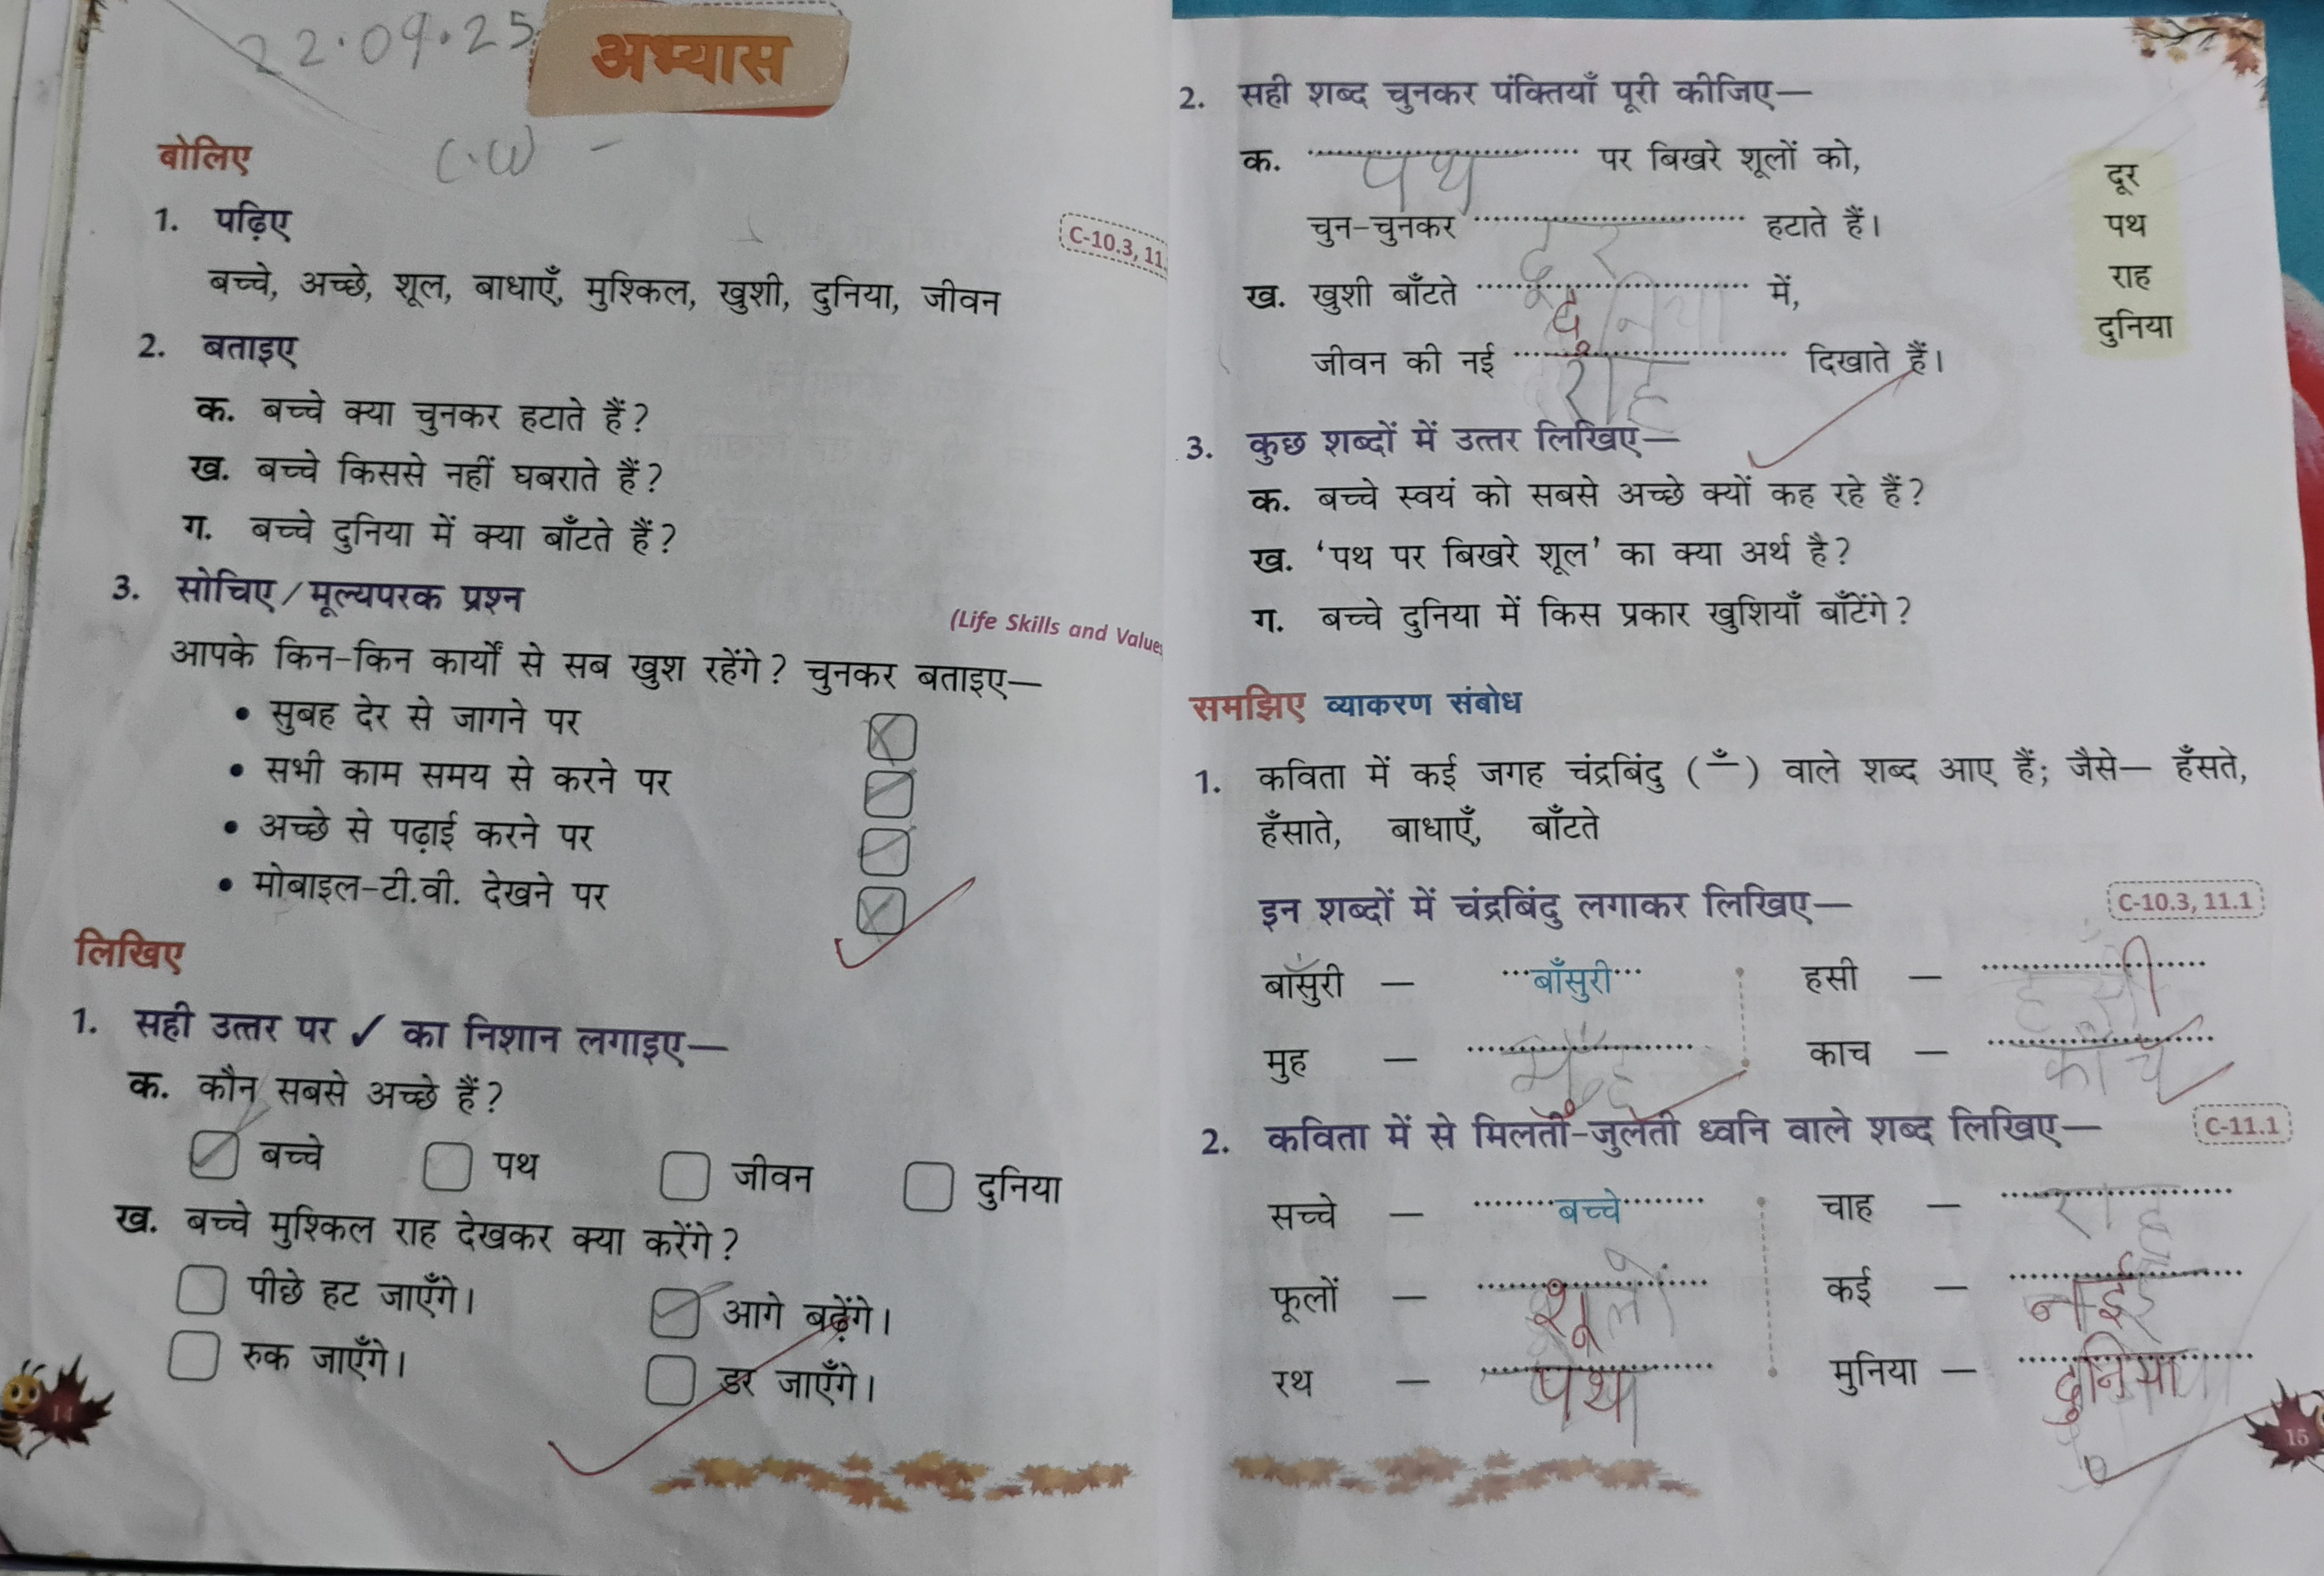 22.09.25
अभ्यास
C.W -
बोलिए
1. पढ़िए
C-10.3, 11.
बच्चे, अच्छे, शूल, बाधाएँ, मुश्किल, खुशी, दुनिया, जीवन
2. बताइए
क. बच्चे क्या चुनकर हटाते हैं?
ख. बच्चे किससे नहीं घबराते हैं?
ग. बच्चे दुनिया में क्या बाँटते हैं?
3. सोचिए/मूल्यपरक प्रश्न
(Life Skills and Values
आपके किन-किन कार्यों से सब खुश रहेंगे? चुनकर बताइए—
• सुबह देर से जागने पर
• सभी काम समय से करने पर
• अच्छे से पढ़ाई करने पर
• मोबाइल-टी.वी. देखने पर
लिखिए
1. सही उत्तर पर ✓ का निशान लगाइए—
क. कौन सबसे अच्छे हैं?
बच्चे पथ जीवन दुनिया
ख. बच्चे मुश्किल राह देखकर क्या करेंगे?
पीछे हट जाएँगे। आगे बढ़ेंगे।
रुक जाएँगे। डर जाएँगे।
14
2. सही शब्द चुनकर पंक्तियाँ पूरी कीजिए—
क. पथ पर बिखरे शूलों को,
चुन-चुनकर दूर हटाते हैं।
ख. खुशी बाँटते दुनिया में,
जीवन की नई राह दिखाते हैं।
दूर
पथ
राह
दुनिया
3. कुछ शब्दों में उत्तर लिखिए—
क. बच्चे स्वयं को सबसे अच्छे क्यों कह रहे हैं?
ख. ‘पथ पर बिखरे शूल’ का क्या अर्थ है?
ग. बच्चे दुनिया में किस प्रकार खुशियाँ बाँटेंगे?
समझिए व्याकरण संबोध
1. कविता में कई जगह चंद्रबिंदु (ँ) वाले शब्द आए हैं; जैसे— हँसते,
हँसाते, बाधाएँ, बाँटते
इन शब्दों में चंद्रबिंदु लगाकर लिखिए—
C-10.3, 11.1
बाँसुरी — बाँसुरी हसी — हँसी
मुह — मुँह काच — काँच
2. कविता में से मिलती-जुलती ध्वनि वाले शब्द लिखिए—
C-11.1
सच्चे — बच्चे चाह — राह
फूलों — शूलों कई — नई
रथ — पथ मुनिया — दुनिया
15